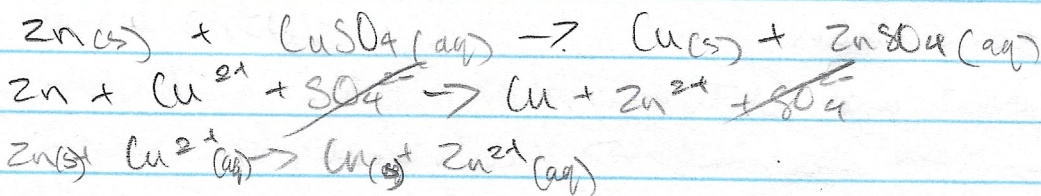 Zn(s) + CuSO4(aq) -> Cu(s) + ZnSO4(aq)
Zn + Cu2+ + SO4 2- -> Cu + Zn2+ + SO4 2-
Zn(s) + Cu2+(aq) -> Cu(s) + Zn2+(aq)